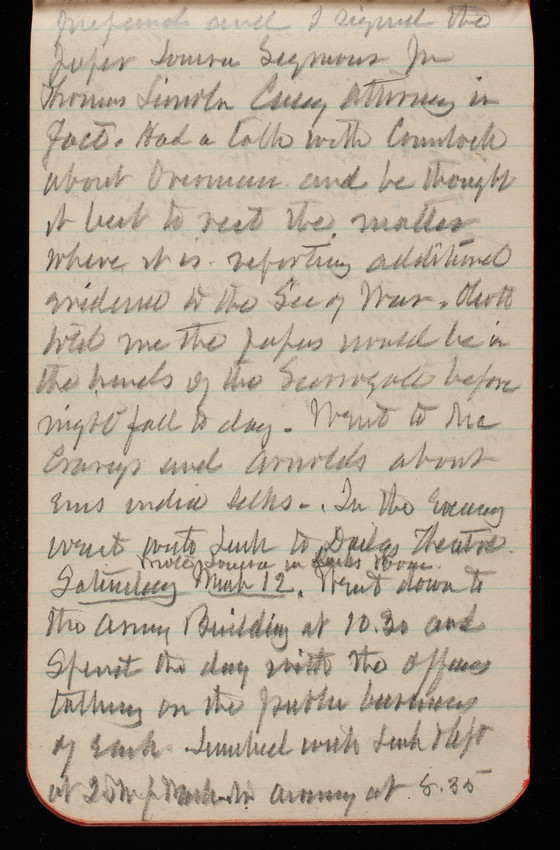 prepared and I signed the
paper Louisa Seymour Jr
Thomas Lincoln Casey Attorney in
fact. Had a talk with Comstock
about and he thought
it best to rest the matter
where it is. reporting additional
evidence to the Sec of War.
told me the papers would be in
the hands of the Surrogate before
night fall to day. Went to Mc
Creerys and Arnolds about
Ems india silks -. In the Evening
went with Link to Dalys Theatre.
wrote Louisa in Links room
Saturday Mar 12. Went down to
the Army Building at 10.30 and
spent the day with the officers
talking on the public business
of each. Lunched with Link & left
at 2 arriving at 8.35